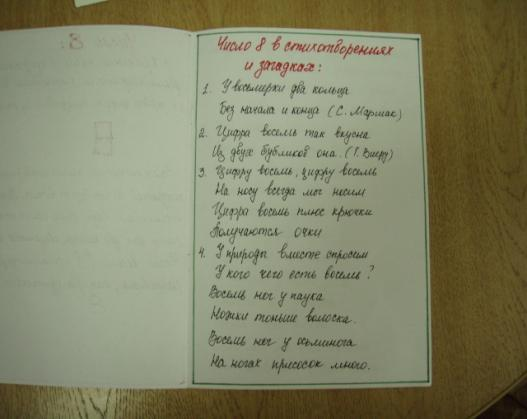 Число 8 в стихотворениях
и загадках:
1. У восьмерки два кольца
Без начала и конца (С. Маршак)
2. Цифра восемь так вкусна
Из двух бубликов она. (Г. Виеру)
3. Цифру восемь, цифру восемь
На носу всегда мы носим
Цифра восемь плюс крючки
Получаются очки
4. У природы вместе спросим
У кого чего есть восемь?
Восемь ног у паука
Ножки тоньше волоска.
Восемь ног у осьминога
На ногах присосок много.